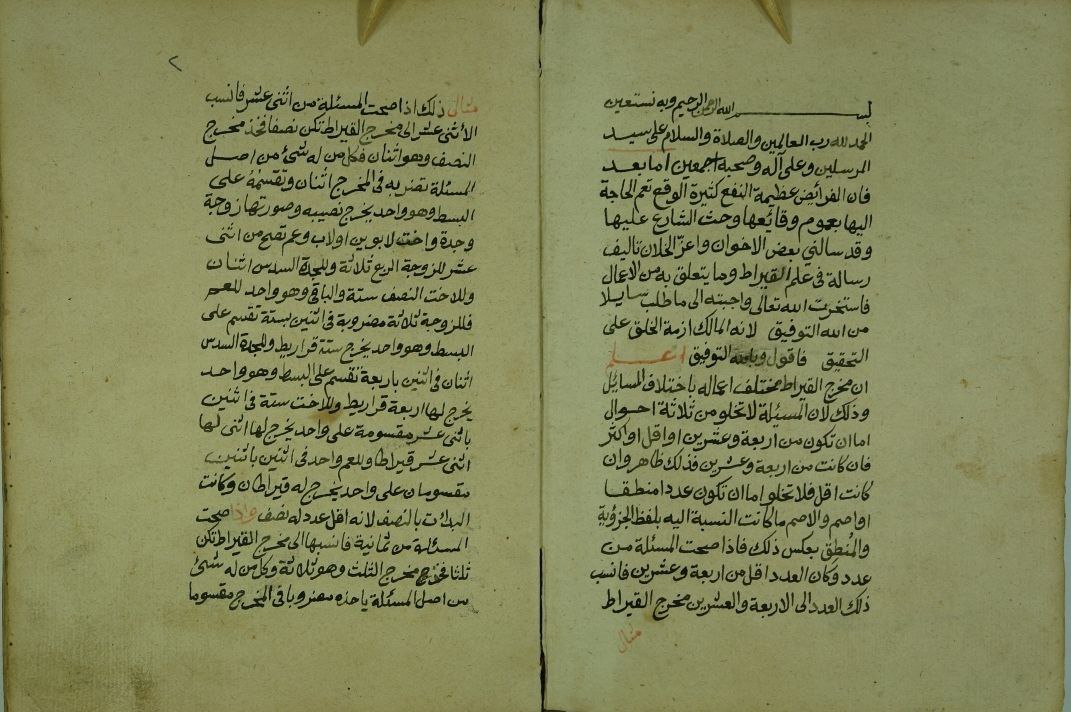 بسم الله الرحمن الرحيم وبه نستعين
الحمد لله رب العالمين والصلاة والسلام على سيد
المرسلين وعلى آله وصحبه اجمعين اما بعد
فان الفرائض عظيمة النفع كثيرة الوقع تعم الحاجة
اليها بعموم وقايعها وحث الشارع عليها
وقد سالني بعض الاخوان واعز الخلان تاليف
رسالة في علم القيراط وما يتعلق به من الاعمال
فاستخرت الله تعالى واجبته الى ما طلب سايلا
من الله التوفيق لانه المالك ازمة الخلق على
التحقيق فاقول وبالله التوفيق اعلم
ان مخرج القيراط مختلف اعماله باختلاف المسائل
وذلك لان المسئلة لا تخلو من ثلاثة احوال
اما ان تكون من اربعة وعشرين او اقل او اكثر
فان كانت من اربعة وعشرين فذلك ظاهر وان
كانت اقل فلا تخلو اما ان تكون عددا منطقا
او اصم والاصم ما كانت النسبة اليه بلفظ الجزؤية
والمنطق بعكس ذلك فاذا صحت المسئلة من
عدد وكان العدد اقل من اربعة وعشرين فانسب
ذلك العدد الى الاربعة والعشرين مخرج القيراط
مثال
٢
مثال ذلك اذا صحت المسئلة من اثنى عشر فانسب
الاثنى عشر الى مخرج القيراط تكن نصفا فخذ مخرج
النصف وهو اثنان فكل من له شئ من اصل
المسئلة تضربه في المخرج اثنان وتقسمه على
البسط وهو واحد يخرج نصيبه وصورتها زوجة
وجدة واخت لابوين او لاب وعم تصح من اثنى
عشر للزوجة الربع ثلاثة وللجدة السدس اثنان
وللاخت النصف ستة والباقى وهو واحد للعم
فللزوجة ثلاثة مضروبة في اثنين بستة تقسم على
البسط وهو واحد يخرج ستة قراريط وللجدة السدس
اثنان في اثنين باربعة تقسم على البسط وهو واحد
يخرج لها اربعة قراريط وللاخت ستة في اثنين
باثنى عشر مقسومة على واحد يخرج لها اثنى لها
اثنى عشر قيراطا وللعم واحد في اثنين باثنين
مقسومان على واحد يخرج له قيراطان وكانت
البدائت بالنصف لانه اقل عدد له نصف واذا صحت
المسئلة من ثمانية فانسبها الى مخرج القيراط تكن
ثلثا فخذ مخرج الثلث وهو ثلاثة وكل من له شئ
من اصل المسئلة ياخذه مضروبا في المخرج مقسوما